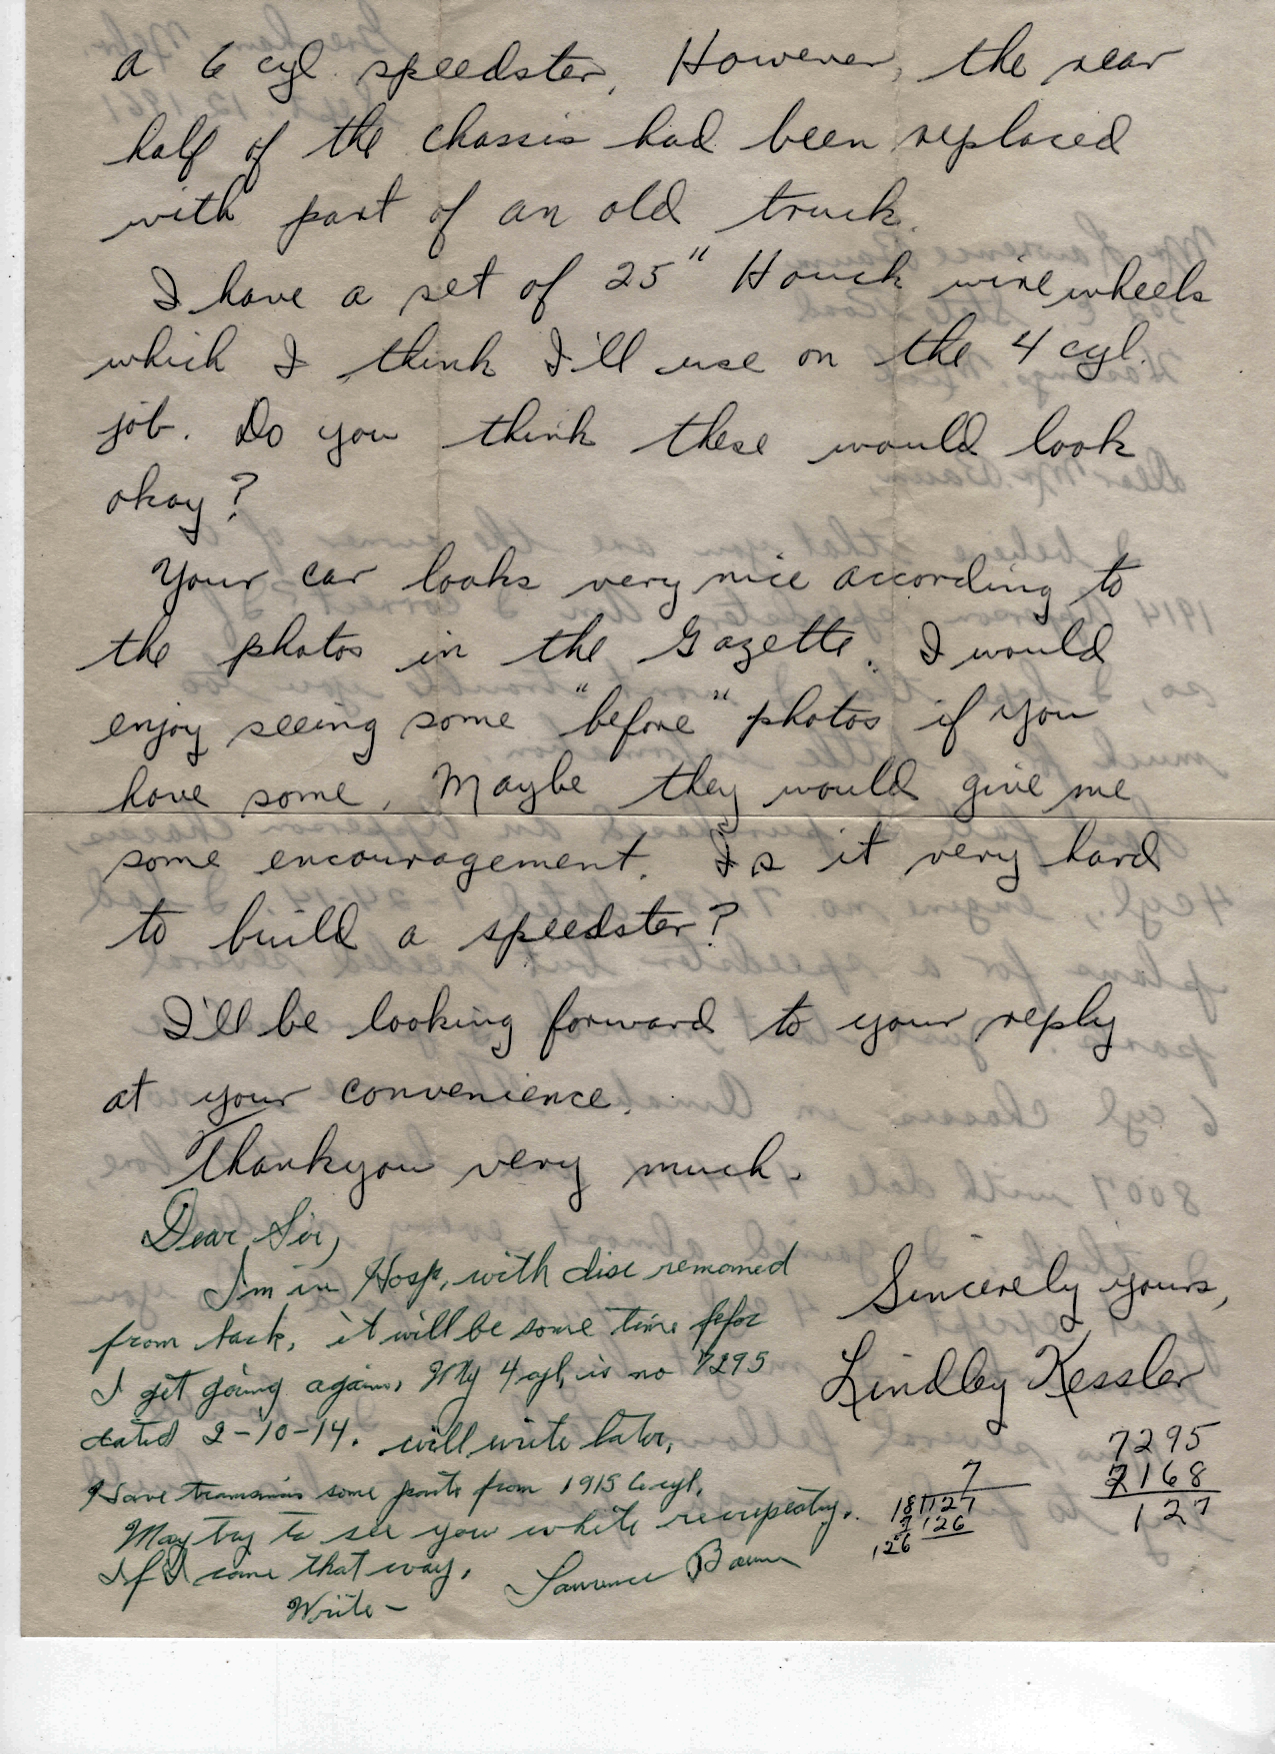 a 6 cyl. speedster. However, the rear
half of the chassis had been replaced
with part of an old truck.
I have a set of 25" Houck wire wheels
which I think I'll use on the 4 cyl.
job. Do you think these would look
okay?
Your car looks very nice according to
the photos in the Gazette. I would
enjoy seeing some "before" photos if you
have some. Maybe they would give me
some encouragement. Is it very hard
to build a speedster?
I'll be looking forward to your reply
at your convenience.
Thankyou very much.
Sincerely yours,
Lindley Kessler
Dear Sir,
I'm in Hosp, with disc removed
from back, it will be some time
I get going again. My 4 cyl, is no 7295
dated 2-10-14. will write later,
Have some parts from 1915 6 cyl.
May try to see you while
If I come that way.
Write - Lawrence Baum
7295
7168
127
7
18 127
7 126
126